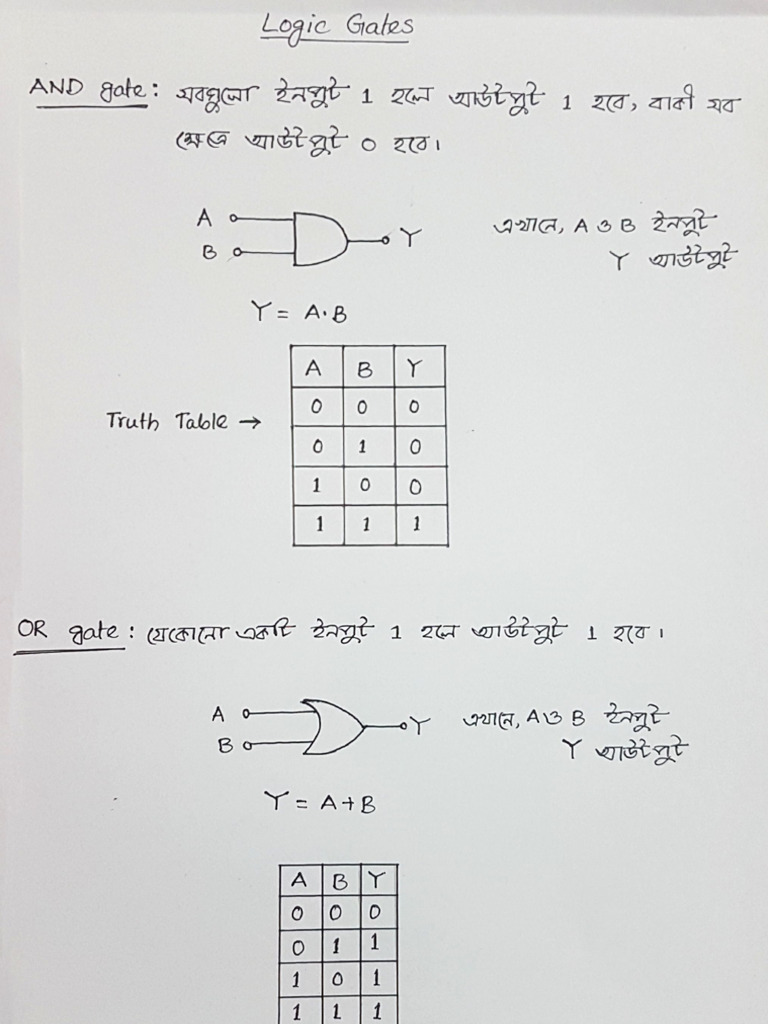 Logic Gates
AND gate: সবগুলো ইনপুট 1 হলে আউটপুট 1 হবে, বাকী সব
ক্ষেত্রে আউটপুট 0 হবে।
A
Y
B
এখানে, A ও B ইনপুট
Y আউটপুট
Y = A.B
A B Y
0 0 0
Truth Table →
0 1 0
1 0 0
1 1 1
OR gate: যেকোনো একটি ইনপুট 1 হলে আউটপুট 1 হবে।
A
Y
B
এখানে, A ও B ইনপুট
Y আউটপুট
Y = A+B
A B Y
0 0 0
0 1 1
1 0 1
1 1 1